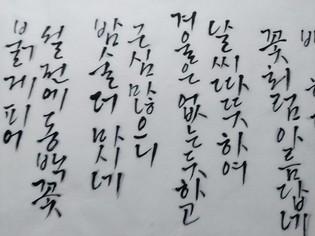 꽃처럼 아름답네
날씨 따뜻하여
겨울은 없는듯하고
근심 많으니
밤술 더 마시네
설전에 동백꽃
붉게 피어